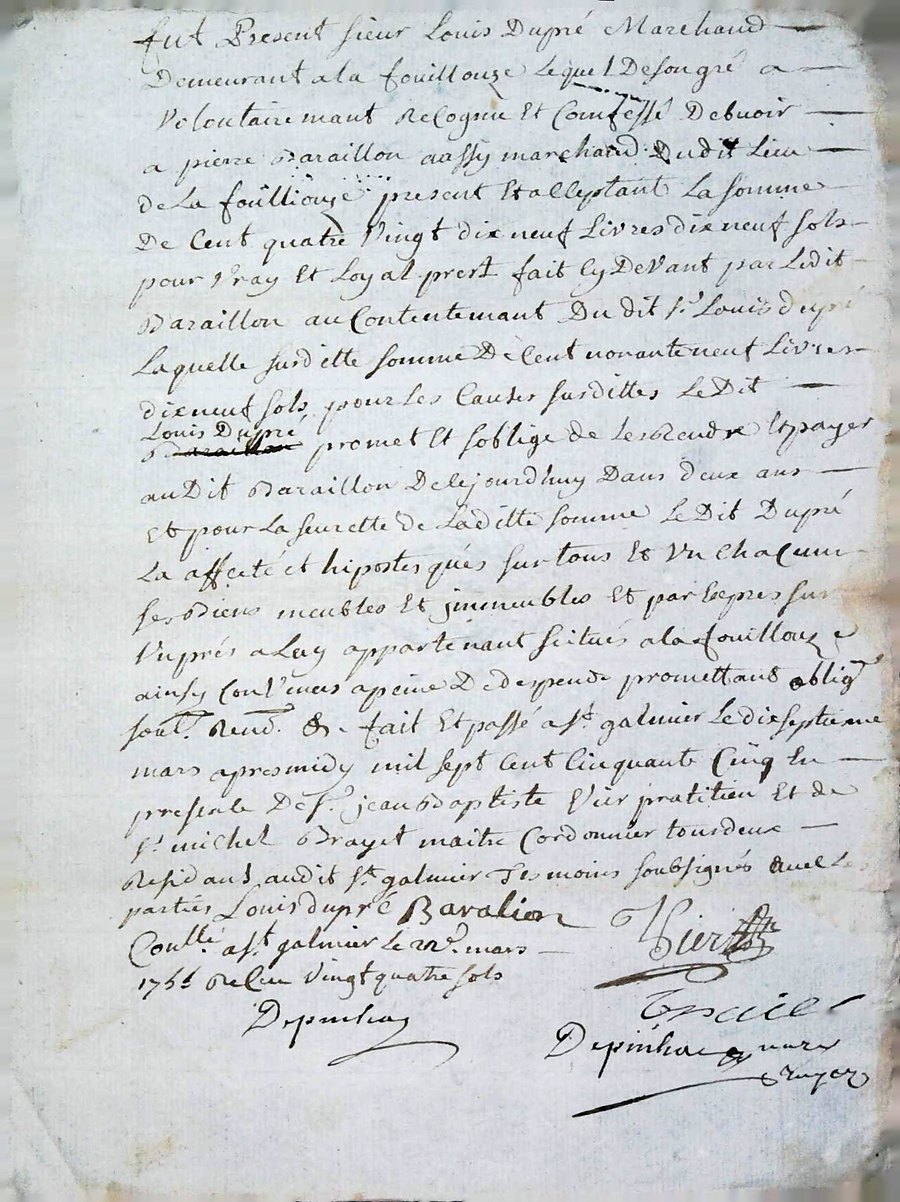 fut Present sieur Louis Dupré Marchand
Demeurant a la fouillouze Lequel De son gré a
Volontairemant ReCognu Et Comfessé Debvoir
a pierre Baraillon aussy marchand Dudit Lieu
de La fouïllouze present Et acceptant La somme
De Cent quatre Vingt dix neuf Livres dix neuf sols
pour Vray Et Loyal prest fait Cy DeVant par Ledit
Baraillon au Contentemant Du dit Sr. Louis dupré
Laquelle susditte somme De Cent nonante neuf Livres
dix neuf sols pour Les Causes susdittes Le Dit
Louis Dupré
promet Et soblige de Les Rendre Et payer
au Dit Baraillon De Cejourdhuy Dans deux ans
Et pour La seuretté de Laditte somme Le Dit Dupré
La affecté et hipostequés sur tous Et Vn Chacuns
ses Biens meubles Et jmmeubles Et par Expres sur
Vn prés a Luy appartenant scitués a la fouillouze
ainsy ConVenus a peine De despends promettant oblig
soub. Rend. &. fait Et passé a St galmier Le dixseptieme
mars apres midy mil sept Cent Cinquante Cinq En
presence De Sr. jean Baptiste Vier pratitien Et de
Sr michel Brayet maitre Cordonnier tous deux
Residants audit St galmier Tesmoins soubsignés avec Les
parties Louis dupré Baralion
Vier
Coullé a St galmier Le mars
175 ReCeu Vingt quatre sols
Depinhac
Depinhac